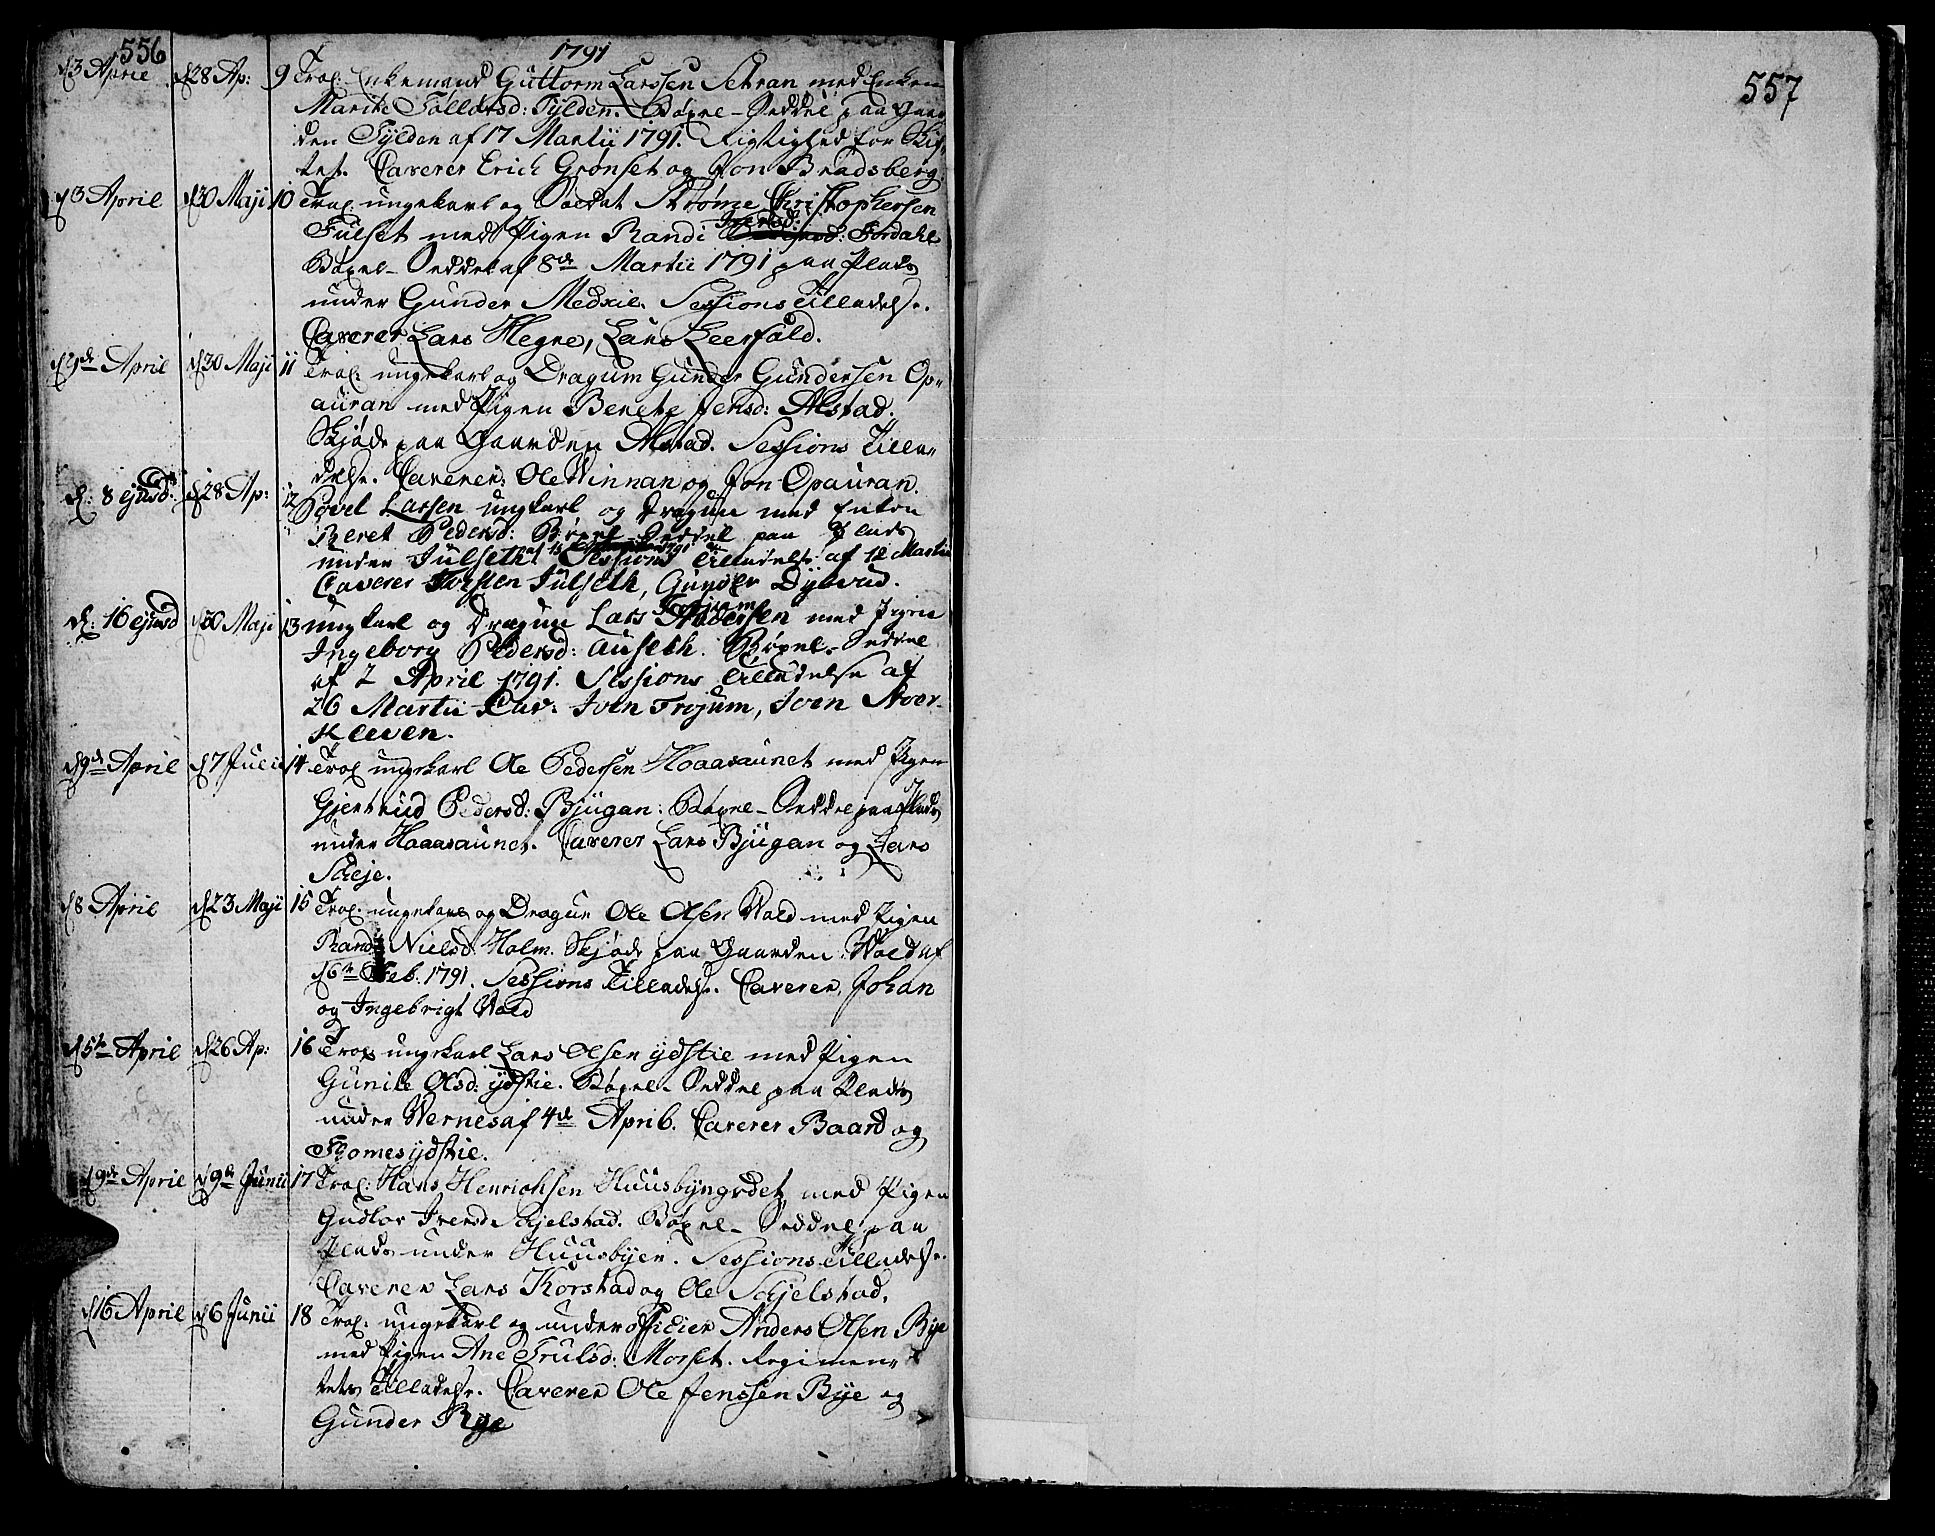 556
1791
d 3 April d 28 Ap: 9 Trol. Enkemand Guttorm Larssen Setran med Enken
Marite Tollorsd: Tylden. Bøxel-Seddel paa Gaar
den Tylden af 17 Martii 1791. Rigtighed for Skif
tet. Caverer Erich Grønset og Jon Bradsberg
d 3 April d 30 Maji 10 Trol. ungekarl og Soldat Strøme Christophersen
Fulset med Pigen Randi Iversd: Fordahl
Bøxel-Seddel af 8de Martii 1791 paa Plads
under Gunder Medxie. Sessions Tilladelse.
Caverer Lars Hegre, Lars Leerfald.
d 9de April d 30 Maji 11 Trol. ungekarl og Dragun Gunder Gundersen Op-
auran med Pigen Berete Jensd: Alstad.
Skjøde paa Gaarden Alstad. Sessions Tilla-
delse. Caverer: Ole Winnan og Jon Opauran.
d: 8 ejusd: d 28 Ap: 12 Povel Larsen ungkarl og Dragun med Enken
Beret Pedersd: Bøxel Seddel paa Plads
under Julseth Sessions Tilladelse af 12 Martii
Caverer Torsten Julseth, Gunder Dybvad.
d: 16 ejusd d 30 Maji 13 ungkarl og Dragun Lars Andersen Trøjum med Pigen
Ingeborg Pedersd: Auseth. Bøxel-Seddel
af 2 April 1791. Sessions Tilladelse af
26 Martii Cav: Joen Trøjum, Joen Stoer-
kleven.
d 9de April d 7 Julii 14 Trol ungekarl Ole Pedersen Hoaasaunet med Pigen
Gjertrud Pedersd: Bjugan: Bøxel-Seddel paa Plads
under Hoaasaunet. Caverer Lars Bjugan og Lars
Skeje.
d 8 April d 23 Maji 15 Trol. ungekarl og Dragun Ole Olsen Wold med Pigen
Randi Nielsd Holm. Skjøde paa Gaarden Wold af
d 6te Feb. 1791. Sessions Tilladelse. Caverer, Johan
og Ingebrigt Wold
d 5te April d 26 Ap: 16 Trol ungekarl Lars Olsen ydstie med Pigen
Gunile Olsd: ydstie. Bøxel-Seddel paa Plads
under Wernes af 4de April. Caverer Baard og
Thomes ydstie.
19de April d 9de Junii 17 Trol: Hans Henrichsen Huusbyngrdet med Pigen
Gudlov Iversd. Schjelstad. Bøxel-Seddel paa
Plads under Huusbyen. Sessions Tilladelse.
Caverer Lars Korstad og Ole Schjelstad.
d 16 April d 6 Junii 18 Trol: ungekarl og underofficier Anders Olsen Bye
med Pigen Ane Trulsd: Morset. Regimen-
tets Tilladelse. Caverer Ole Jenssen Bye og
Gunder Rye
557